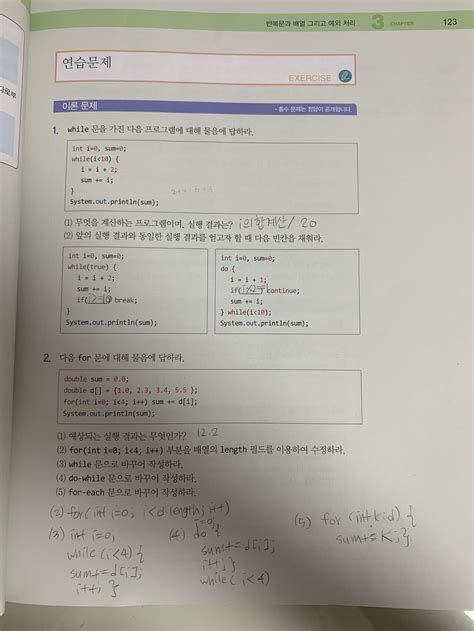 반복문과 배열 그리고 예외 처리 3 CHAPTER 123
연습문제
EXERCISE
이론 문제
• 홀수 문제는 정답이 공개됩니다.
1. while 문을 가진 다음 프로그램에 대해 물음에 답하라.
int i=0, sum=0;
while(i<10) {
i = i + 2;
sum += i;
}
System.out.println(sum);
(1) 무엇을 계산하는 프로그램이며, 실행 결과는? i의합계산/ 20
(2) 앞의 실행 결과와 동일한 실행 결과를 얻고자 할 때 다음 빈칸을 채워라.
int i=0, sum=0;
while(true) {
i = i + 2;
sum += i;
if( ) break;
}
System.out.println(sum);
int i=0, sum=0;
do {
i = i + 1;
if( ) continue;
sum += i;
} while(i<10);
System.out.println(sum);
2. 다음 for 문에 대해 물음에 답하라.
double sum = 0.0;
double d[] = {1.0, 2.3, 3.4, 5.5 };
for(int i=0; i<4; i++) sum += d[i];
System.out.println(sum);
(1) 예상되는 실행 결과는 무엇인가? 12.2
(2) for(int i=0; i<4; i++) 부분을 배열의 length 필드를 이용하여 수정하라.
(3) while 문으로 바꾸어 작성하라.
(4) do-while 문으로 바꾸어 작성하라.
(5) for-each 문으로 바꾸어 작성하라.
(2) for( int i=0; i<d.length; i++)
(3) int i=0;
while (i<4) {
sum+=d[i];
i++; }
(4) i=0;
do {
sum+=d[i];
i++; }
while( i<4)
(5) for (int k:d) {
sum+=k; }